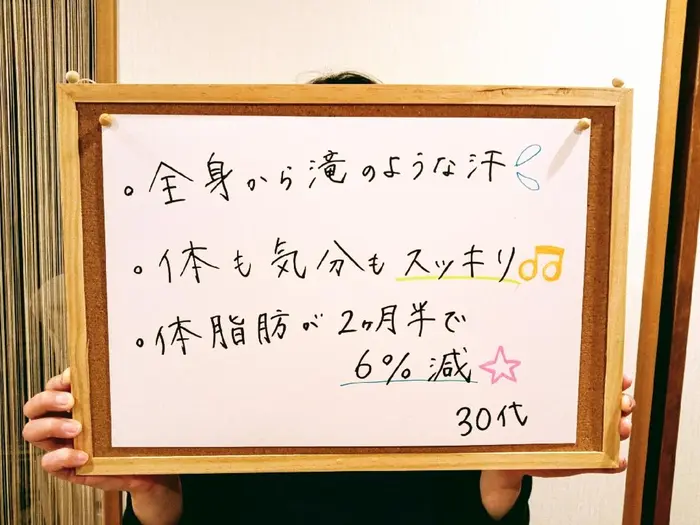 。全身から滝のような汗
。体も気分もスッキリ
。体脂肪が2ヶ月半で
6%減☆
30代